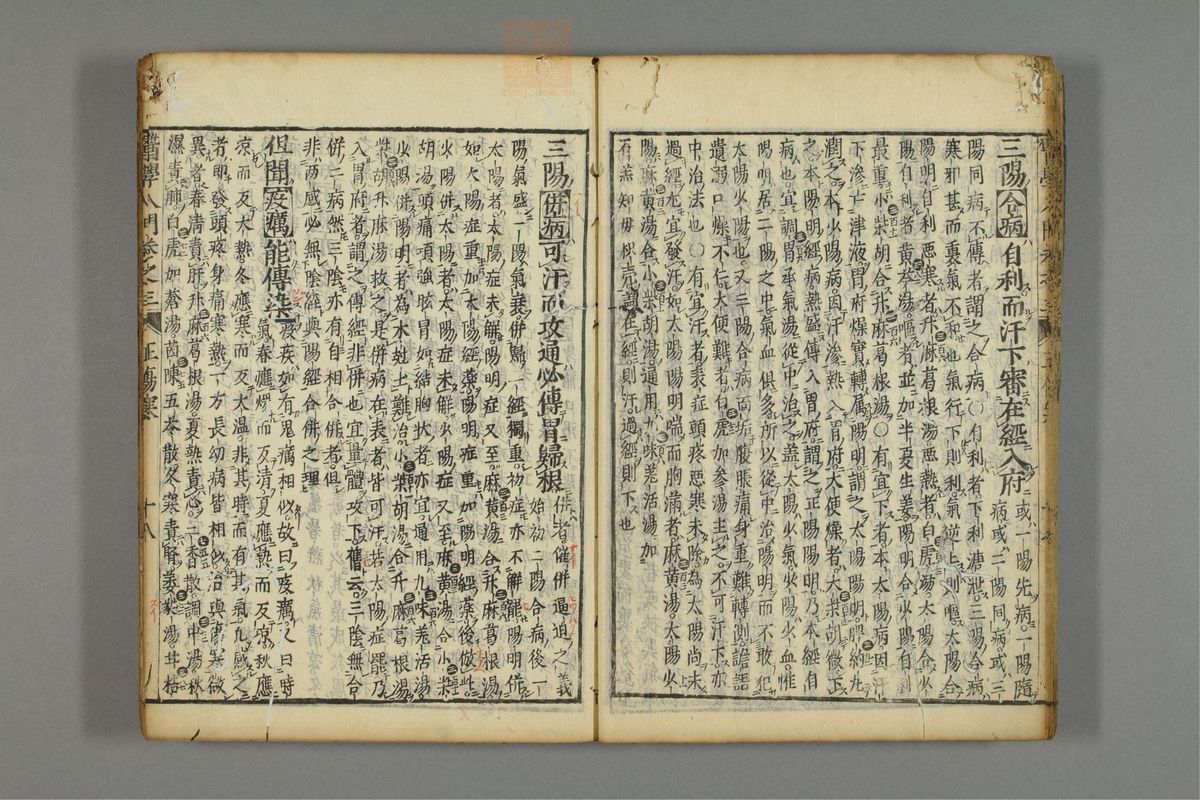 三陽合病自利而汗下審在經入府
或一陽先病一陽隨
病或二陽同病或三
陽同病不傳者謂之合病○有利者下利溏泄三陽合病
寒邪甚而裏氣不和也氣行下則利氣逆上則嘔太陽合
陽明自利惡寒者升麻葛根湯惡熱者白虎湯太陽合少
陽自利者黃芩湯嘔者並加半夏生姜陽明合少陽自利
最重小柴胡合升麻葛根湯○有宜下者本太陽病因汗
下滲亡津液胃府燥實轉属陽明謂之太陽陽明脾約丸
潤之本少陽病因汗滲熱入胃府大便燥者大柴胡微下
之本陽明經病熱盛傳入胃府謂之正陽陽明乃本經自
病也宜調胃承氣湯從中治之葢太陽少氣少陽少血惟
陽明居二陽之中氣血俱多所以從中治陽明而不敢犯
太陽少陽也又三陽合病面垢腹脹痛身重難轉側譫語
遺溺口燥不仁大便難者白虎加參湯主之不可汗下亦
中治法也○有宜汗者表症頭疼惡寒未除為太陽尚未
過經尤宜發汗如太陽陽明喘而胸滿者麻黃湯太陽少
陽麻黃湯合小柴胡湯通用九味羌活湯加
石羔知母枳壳葢在經則汗過經則下也
三陽併病可汗而攻通必傳胃歸根
併者催併逼迫之義
始初二陽合病後一
陽氣盛一陽氣衰併歸一經獨重初症亦不解罷陽明併
太陽者太陽症未解陽明症又至麻黃湯合升麻葛根湯
如太陽症重加太陽經藥陽明症重加陽明經藥後倣此
少陽併太陽者太陽症未解少陽症又至麻黃湯合小柴
胡湯頭痛項強眩冒如結胸狀者亦宜通用九味羌活湯
少陽併陽明者為木尅土難治小柴胡湯合升麻葛根湯
柴胡升麻湯救之凡併病在表者皆可汗若太陽症罷乃
入胃府者謂之傳經非併也宜量體攻下舊云三陰無合
併二病然三陰亦有自相合併者俱
非两感必無陰經與陽經合併之理
但聞疫癘能傳染
疫疾如有鬼癘相似故曰疫癘又曰時
氣春應煖而反清夏應熱而反凉秋應
凉而反大熱冬應寒而反大温非其時而有其氣凡感之
者即發頭疼身痛寒熱一方長幼病皆相似治與傷寒微
異者春清責肝升麻葛根湯夏熱責心二香散調中湯秋
濕責肺白虎加蒼湯茵陳五苓散冬寒責腎葳蕤湯甘桔
醫學入門卷之三 正傷寒 十八